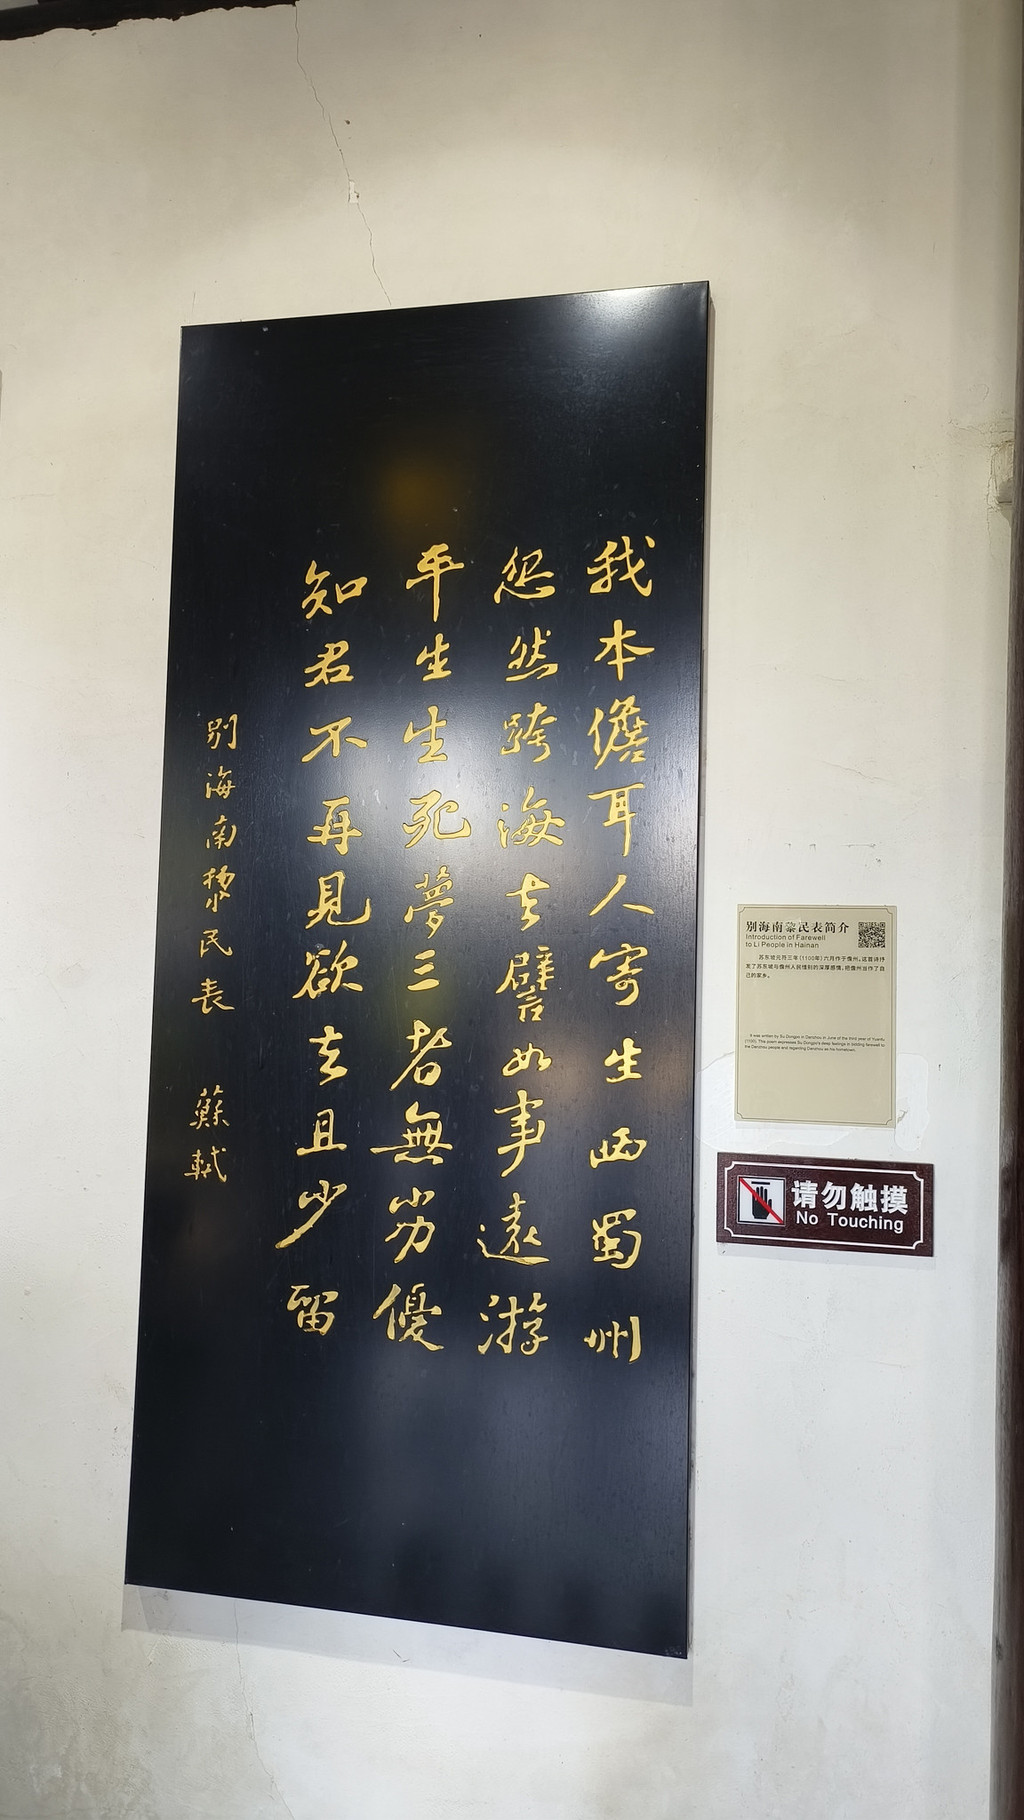 我本儋耳人寄生西蜀州
忽然跨海去譬如事遠游
平生生死夢三者無劣優
知君不再見欲去且少留
别海南黎民表 蘇軾
别海南黎民表简介
Introduction of Farewell
to Li People in Hainan
苏东坡元符三年(1100年)六月作于儋州。这首诗抒
发了苏东坡与儋州人民惜别的深厚感情,把儋州当作了自
己的家乡。
It was written by Su Dongpo in Danzhou in June of the third year of Yuanfu
(1100). This poem expresses Su Dongpo's deep feelings in bidding farewell to
the Danzhou people and regarding Danzhou as his hometown.
请勿触摸
No Touching